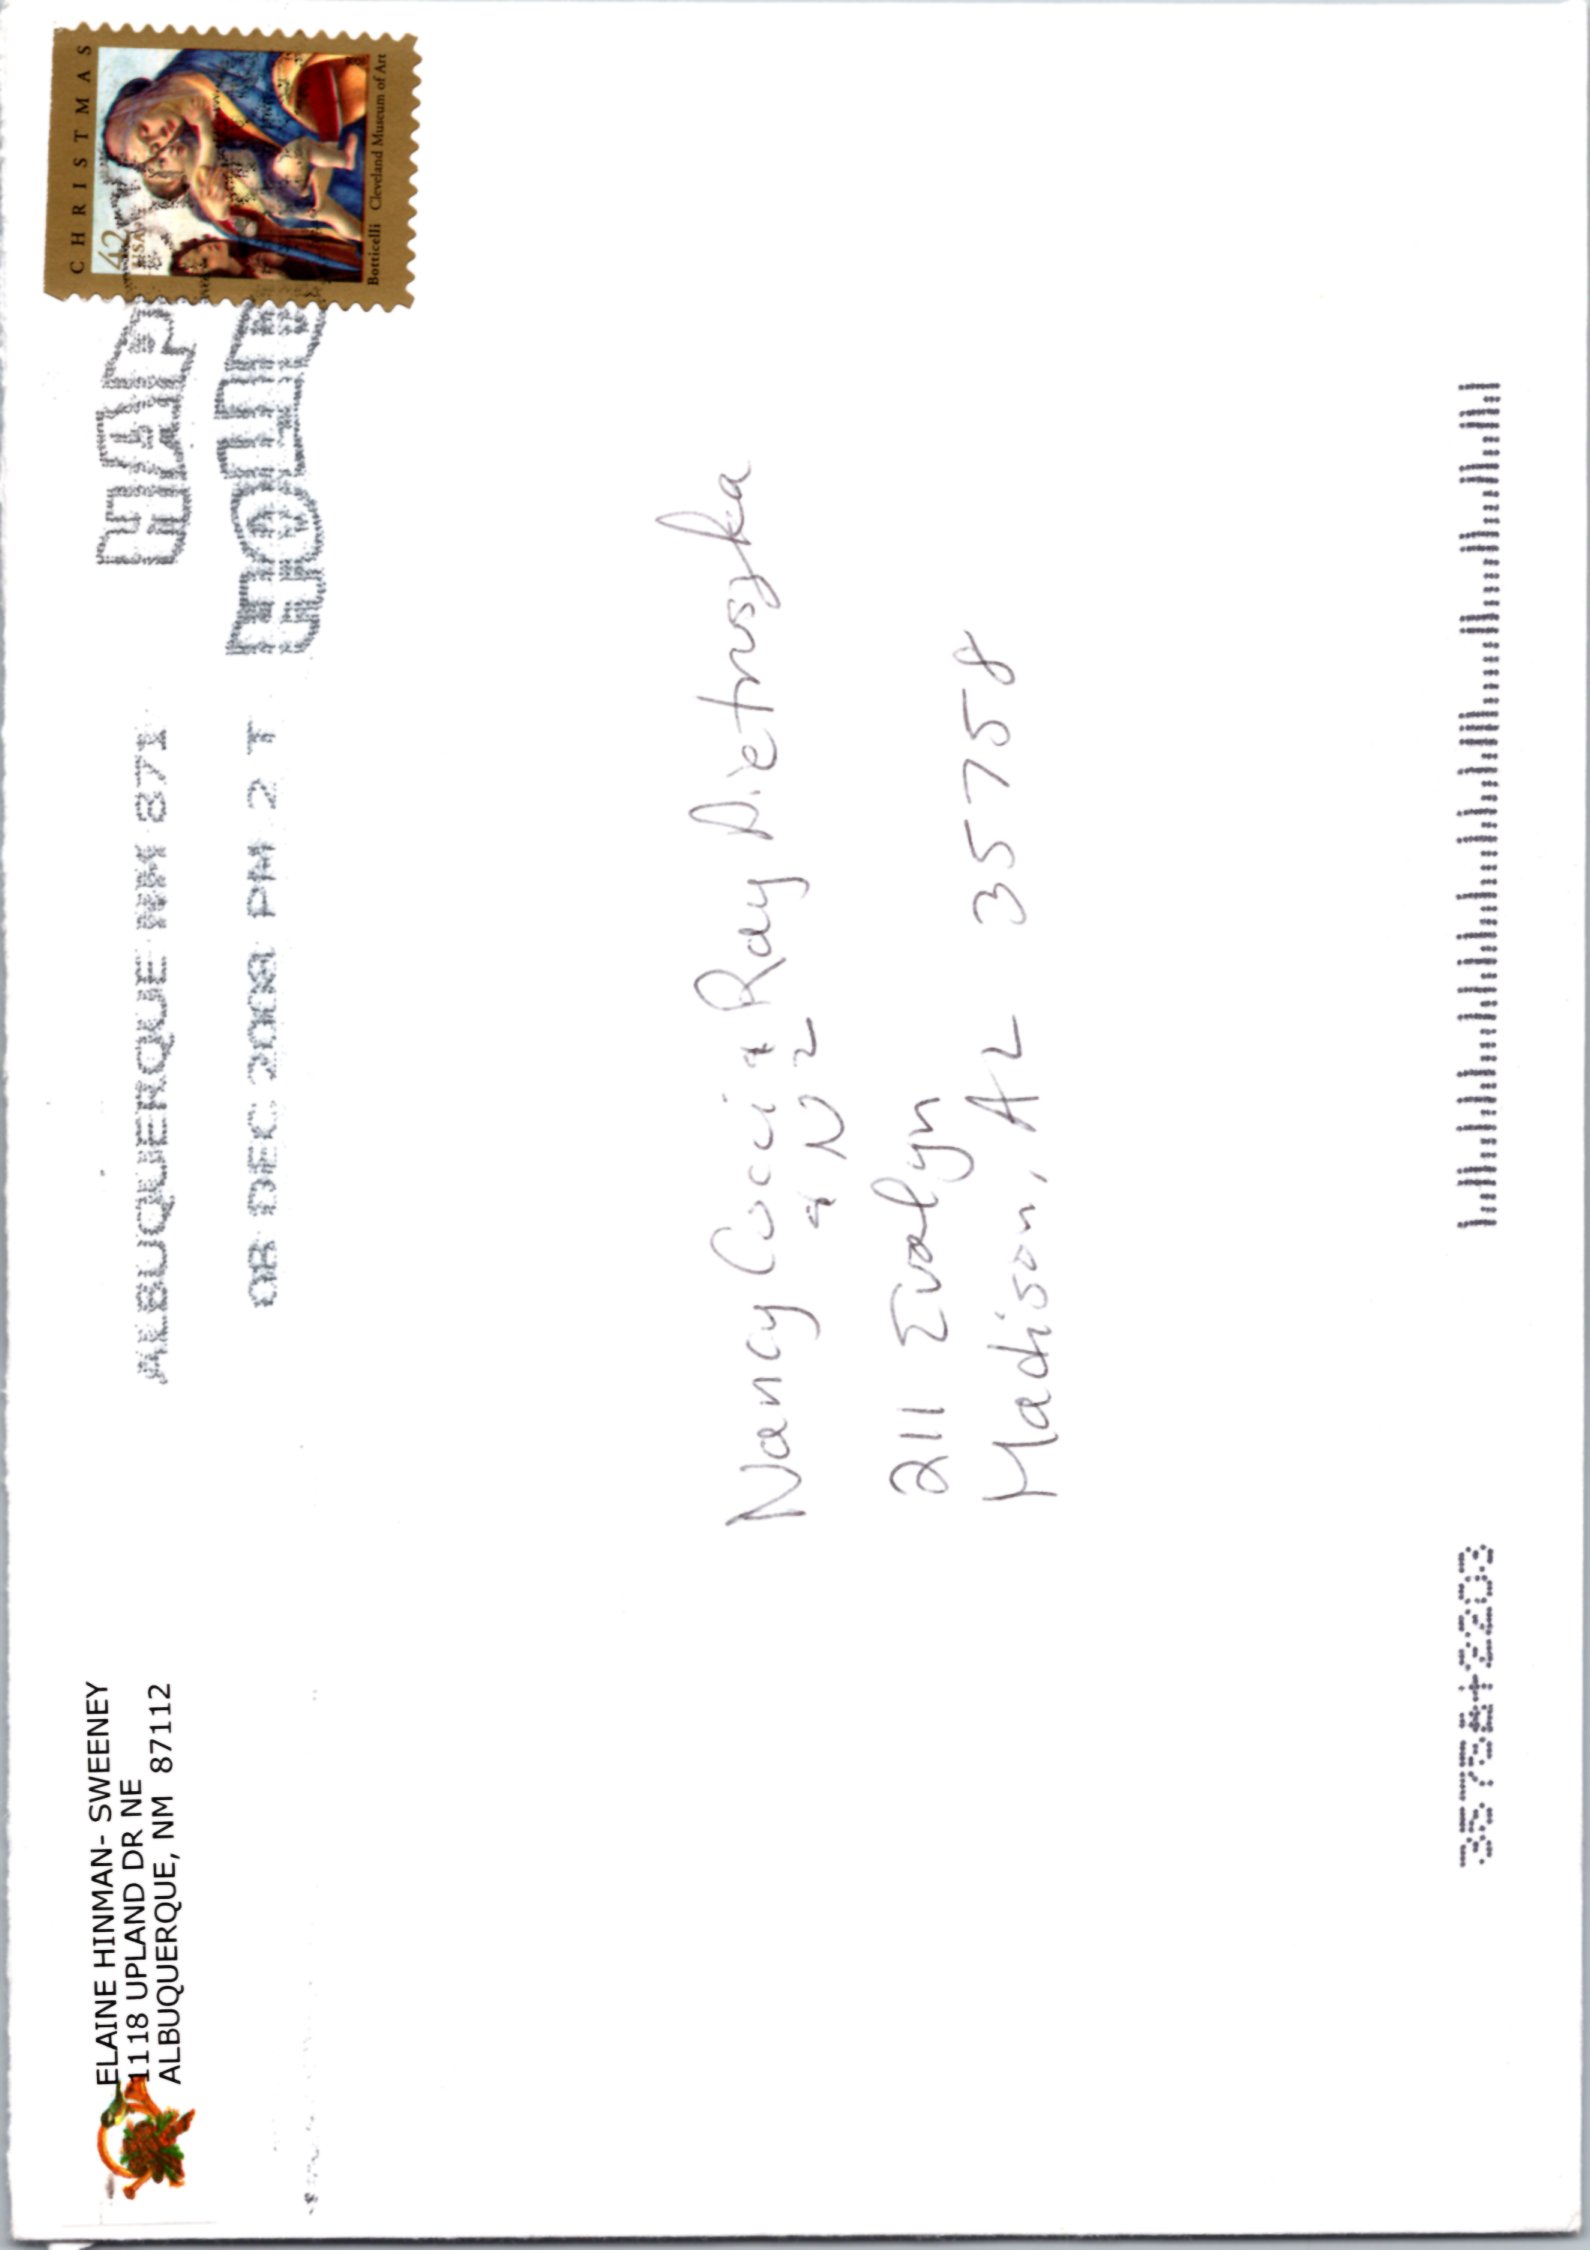 ELAINE HINMAN- SWEENEY
1118 UPLAND DR NE
ALBUQUERQUE, NM 87112
ALBUQUERQUE NM 871
08 DEC 2008 PM 2 T
HAP
HOLID
CHRISTMAS
42
USA
2008
Botticelli Cleveland Museum of Art
Nancy Cocci & Ray Pietruszka
& N2
211 Evalyn
Madison, AL 35758
35758+2203